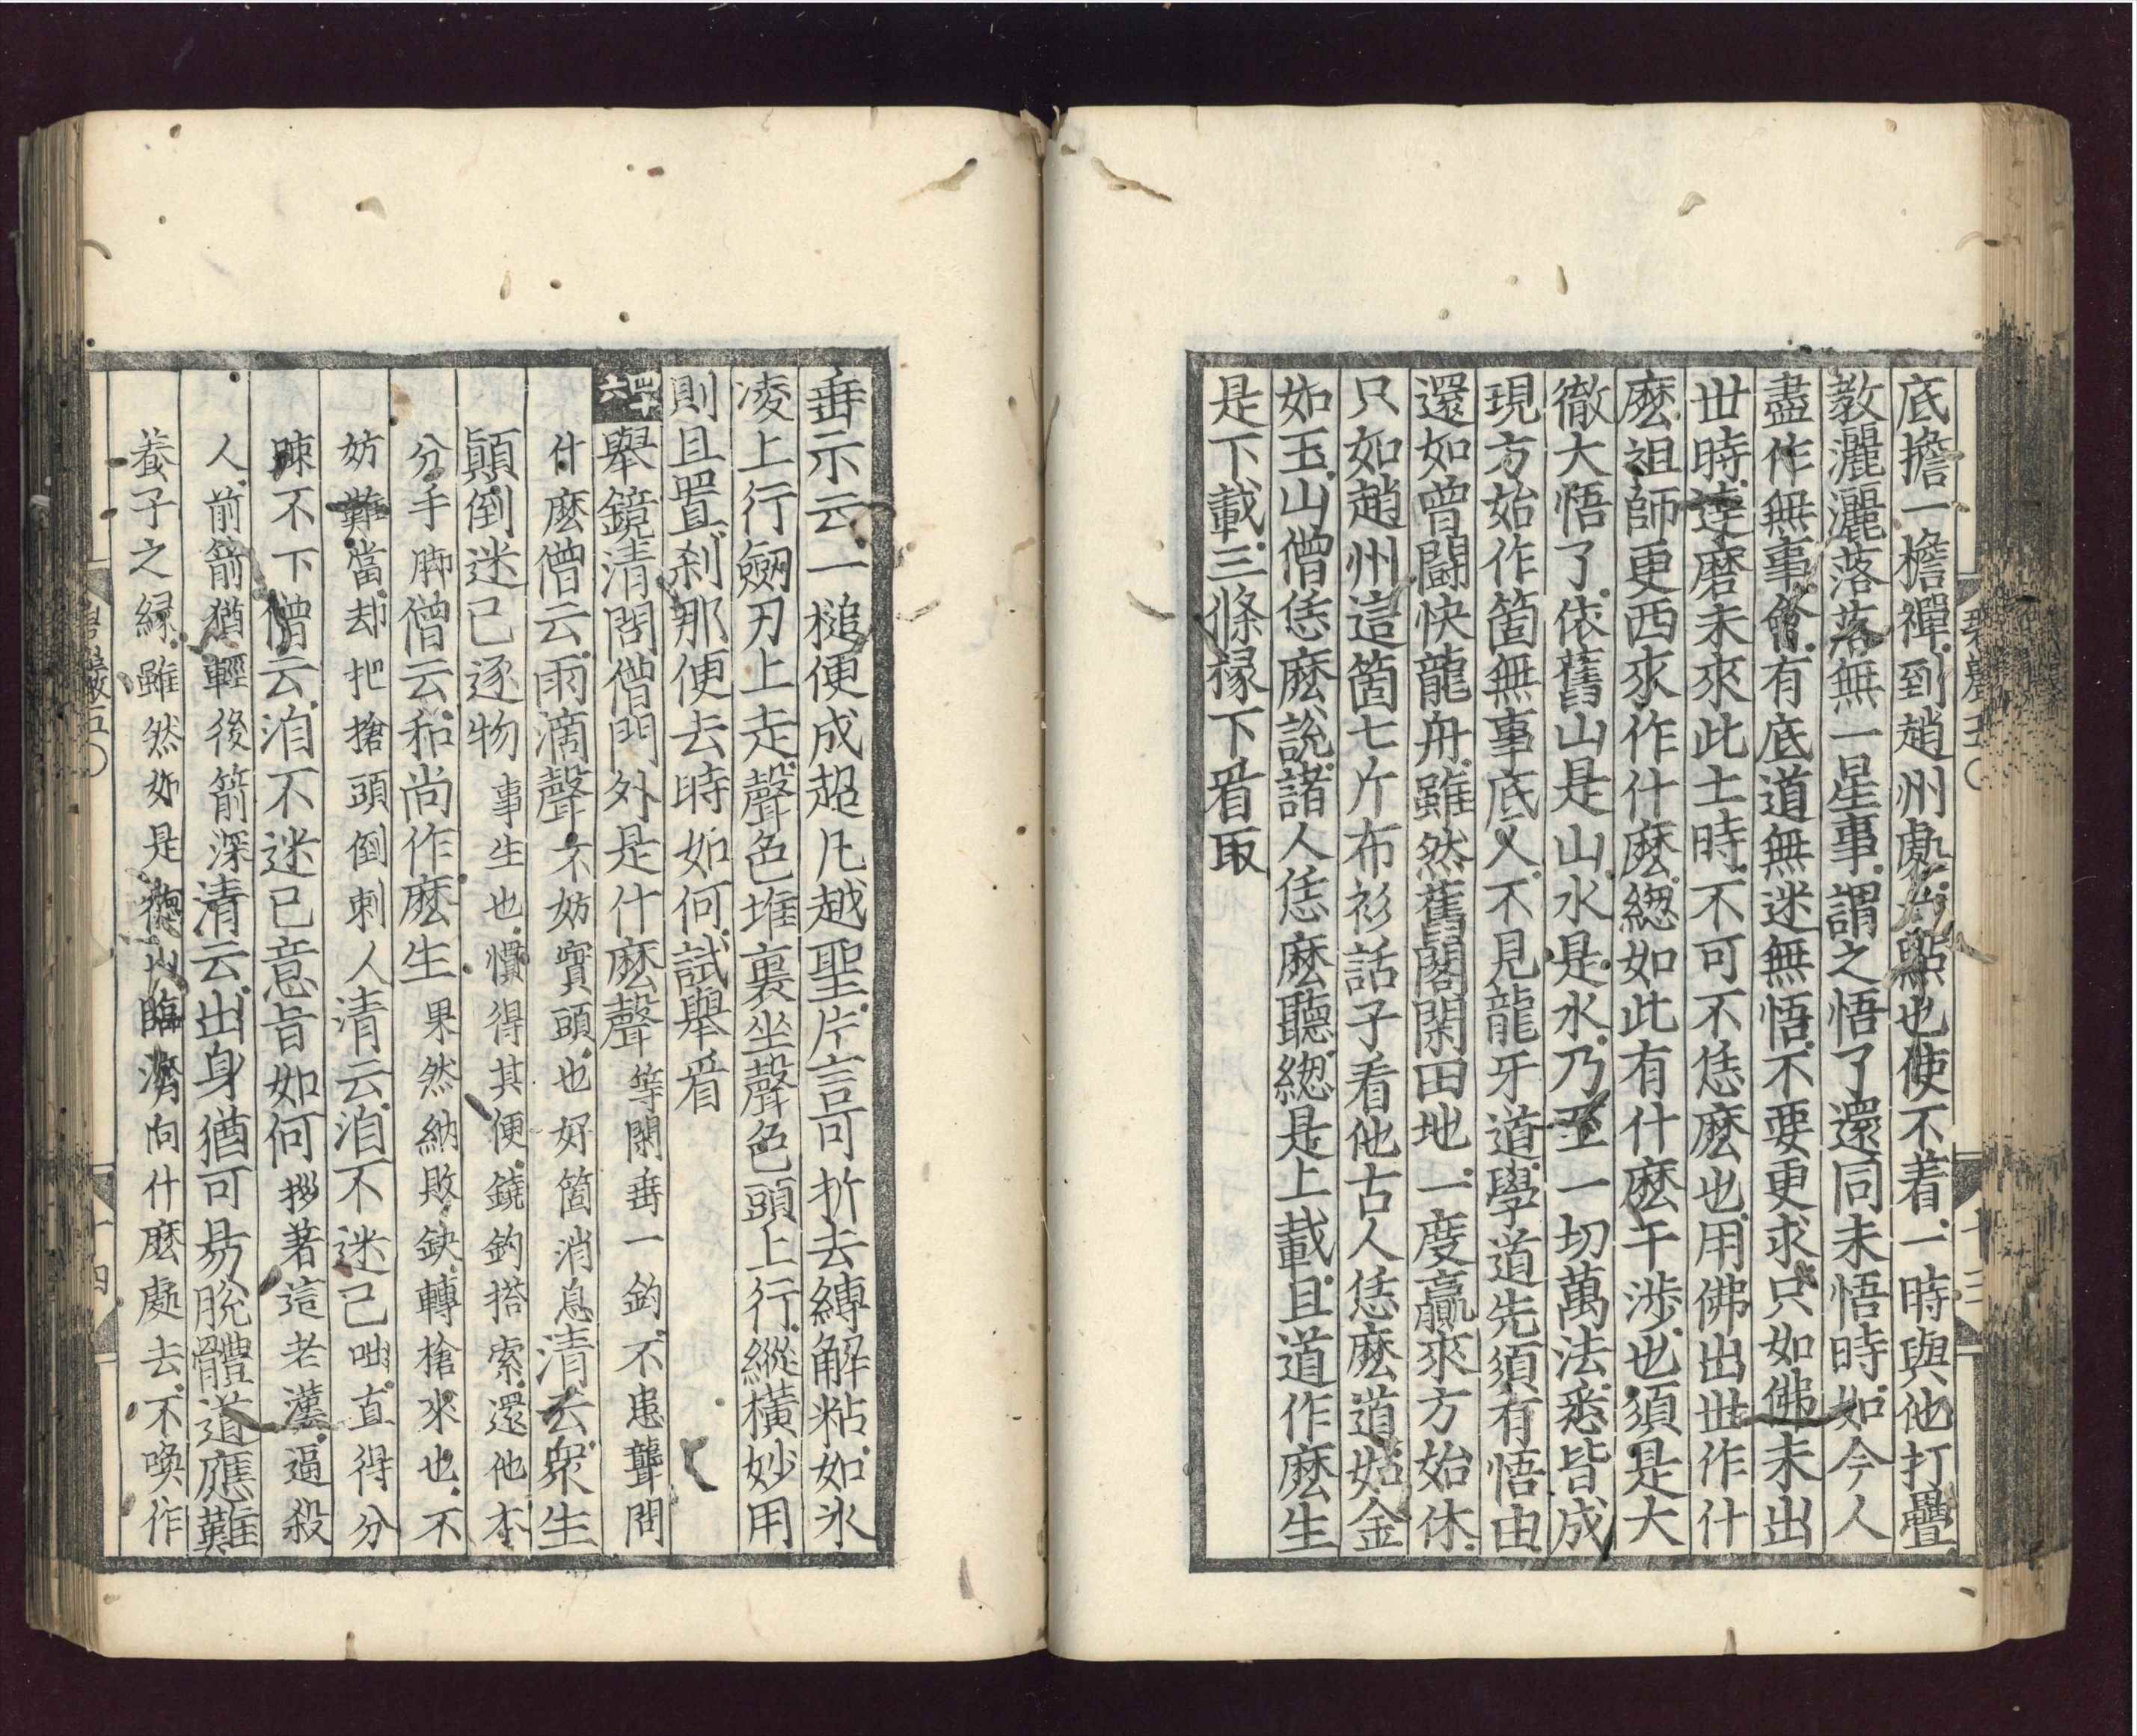 底擔一擔禪到趙州處一點也使不着一時與他打疊
教灑灑落落無一星事謂之悟了還同未悟時如今人
盡作無事會有底道無迷無悟不要更求只如佛未出
世時達磨未來此土時不可不恁麽也用佛出世作什
麽祖師更西來作什麽緫如此有什麽干涉也須是大
徹大悟了依舊山是山水是水乃至一切萬法悉皆成
現方始作箇無事底人不見龍牙道學道先須有悟由
還如曾鬪快龍舟雖然舊閣閑田地一度贏來方始休
只如趙州這箇七斤布衫話子看他古人恁麽道如金
如玉山僧恁麽說諸人恁麽聽緫是上載且道作麽生
是下載三條椽下看取
碧巖五〇
十三
垂示云一槌便成超凡越聖片言可折去縛解粘如氷
凌上行劒刃上走聲色堆裏坐聲色頭上行縱橫妙用
則且置刹那便去時如何試舉看
四十六 舉鏡清問僧門外是什麽聲等閑垂一釣不患聾問
什麽僧云雨滴聲不妨實頭也好箇消息清云衆生
顛倒迷己逐物事生也慣得其便鐃鈎搭索還他本
分手脚僧云和尚作麽生果然納敗缺轉槍來也不
妨難當却把槍頭倒刺人清云洎不迷己咄直得分
踈不下僧云洎不迷己意旨如何拶著這老漢逼殺
人前箭猶輕後箭深清云出身猶可易脫體道應難
養子之緣雖然如是德山臨濟向什麽處去不喚作
碧巖五〇
十四